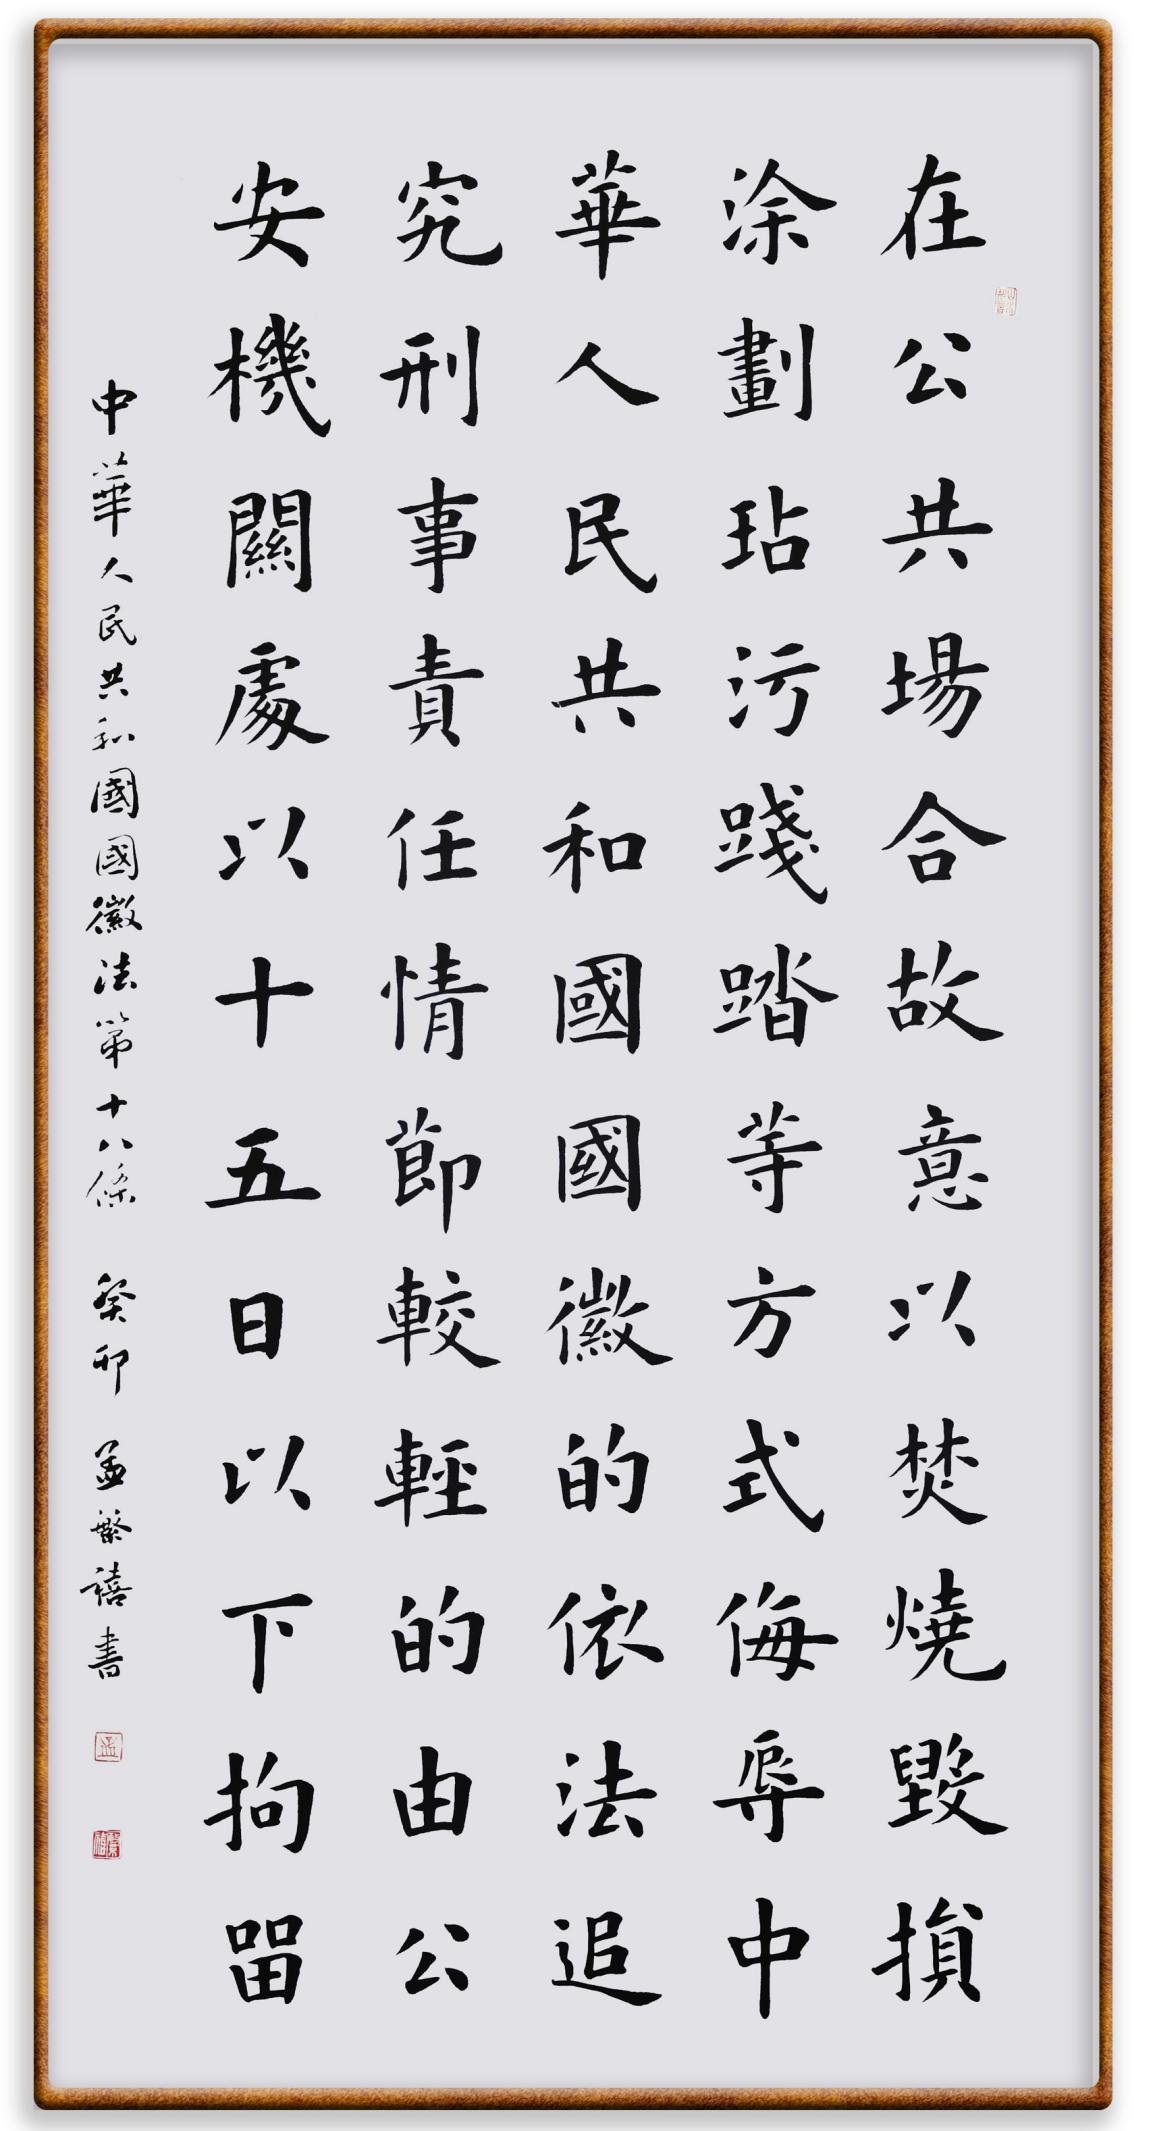 在公共場合故意以焚燒毀損
涂劃玷污踐踏等方式侮辱中
華人民共和國國徽的依法追
究刑事責任情節較輕的由公
安機關處以十五日以下拘留
中華人民共和國國徽法第十八條 癸卯 孟繁禧書
孟